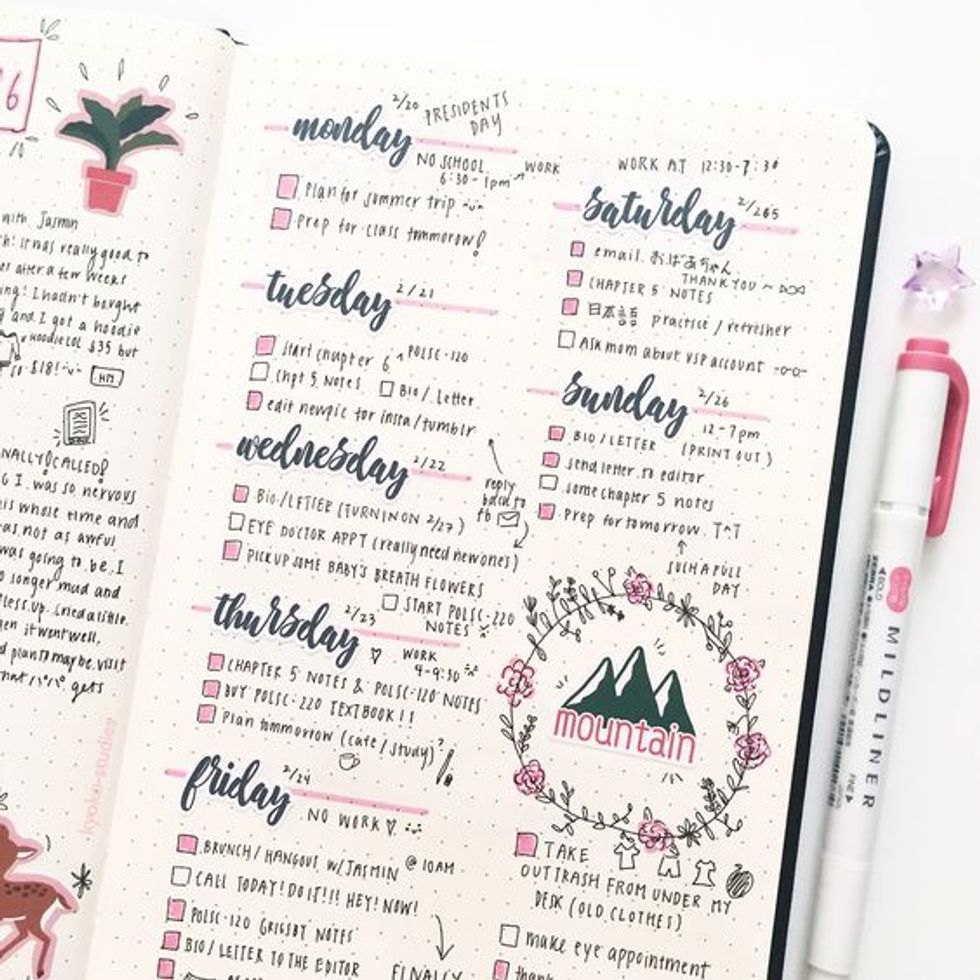 6
with Jasmin
it was really good to
after a few weeks
I hadn't bought
and I got a hoodie
hoodie LOL $35 but
$18!
HM
CALLED!
I was so nervous
whole time and
as not as awful
was going to be. I
longer mad and
up. Cried a little.
it went well.
maybe visit
gets
kyoko-studies
monday
2/20 PRESIDENTS
DAY
NO SCHOOL
6:30 - 1pm → WORK
Plan for summer trip
Prep for class tommorow!
tuesday
2/21
Start chapter 6 POLSC-120
Chpt 5 Notes
Bio / Letter
edit new pic for insta/tumblr
wednesday
2/22
BIO/LETTER (TURN IN ON 2/27)
EYE DOCTOR APPT (really need new ones)
PICK UP SOME BABY'S BREATH FLOWERS
reply
back to
fb
START POLSC-220
NOTES
thursday
2/23
WORK
4-9:30
CHAPTER 5 NOTES & POLSC-120 NOTES
BUY POLSC-220 TEXTBOOK!!
Plan tommorow (cafe/study)?
friday
2/24
NO WORK
BRUNCH/HANGOUT W/JASMIN @ 10AM
CALL TODAY! DO IT!!! HEY! NOW!
POLSC-120 GRIGSBY NOTES
BIO/LETTER TO THE EDITOR
FINALLY
WORK AT 12:30-7:30
saturday
email おばあちゃん
THANK YOU ~
CHAPTER 5 NOTES
日本語 practice / refresher
Ask mom about VSP account
sunday
2/26
12-7pm
BIO/LETTER (PRINT OUT)
send letter to editor
some chapter 5 notes
Prep for tomorrow. T^T
SUCH A FULL
DAY
mountain
TAKE
OUT TRASH FROM UNDER MY
DESK (OLD CLOTHES)
make eye appointment
thank
MILDLINER
ZEBRA
BOLD
FINE